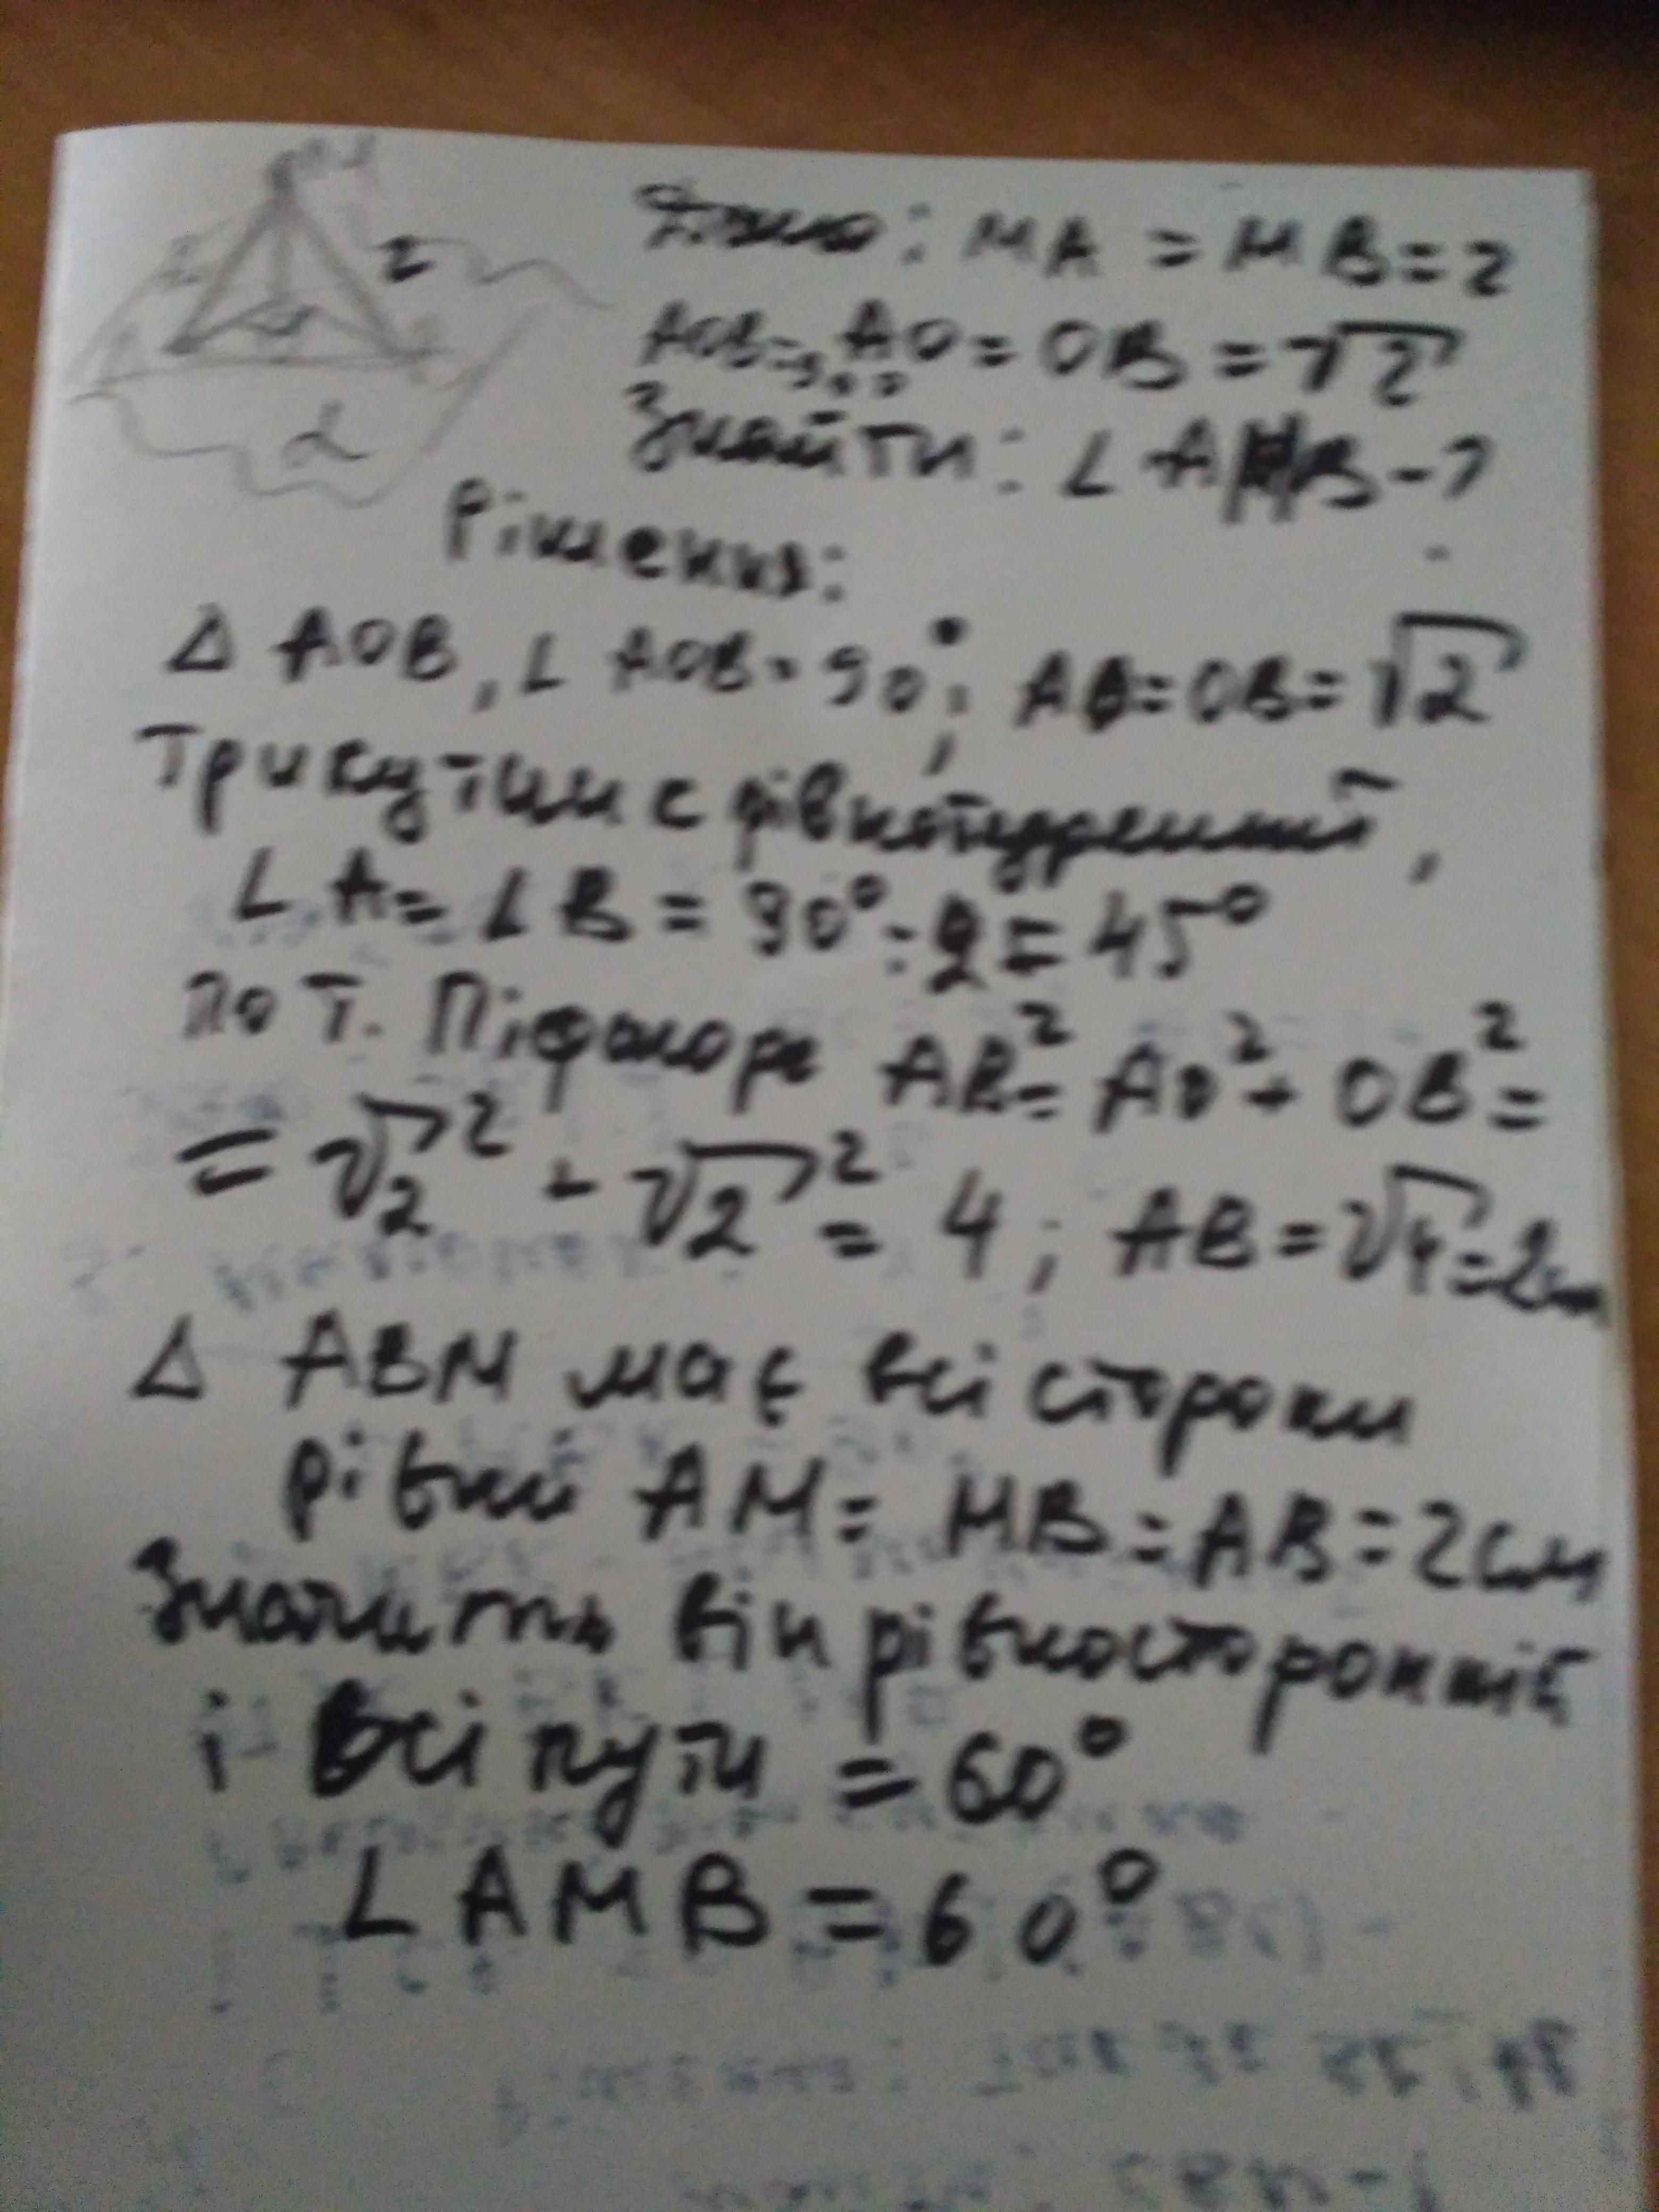 M
2 2
O
α
Дано: MA = MB = 2
AOB=90° AO = OB = √2
Знайти: ∟AMB - ?
Рішення:
Δ AOB, ∟AOB = 90°; AO = OB = √2
Трикутник є рівнобедрений,
∟A = ∟B = 90° : 2 = 45°
по т. Піфагора AB² = AO² + OB² =
= √2² + √2² = 4; AB = √4 = 2см
Δ ABM має всі сторони
рівні AM = MB = AB = 2см
Значить він рівносторонній
і всі кути = 60°
∟AMB = 60°